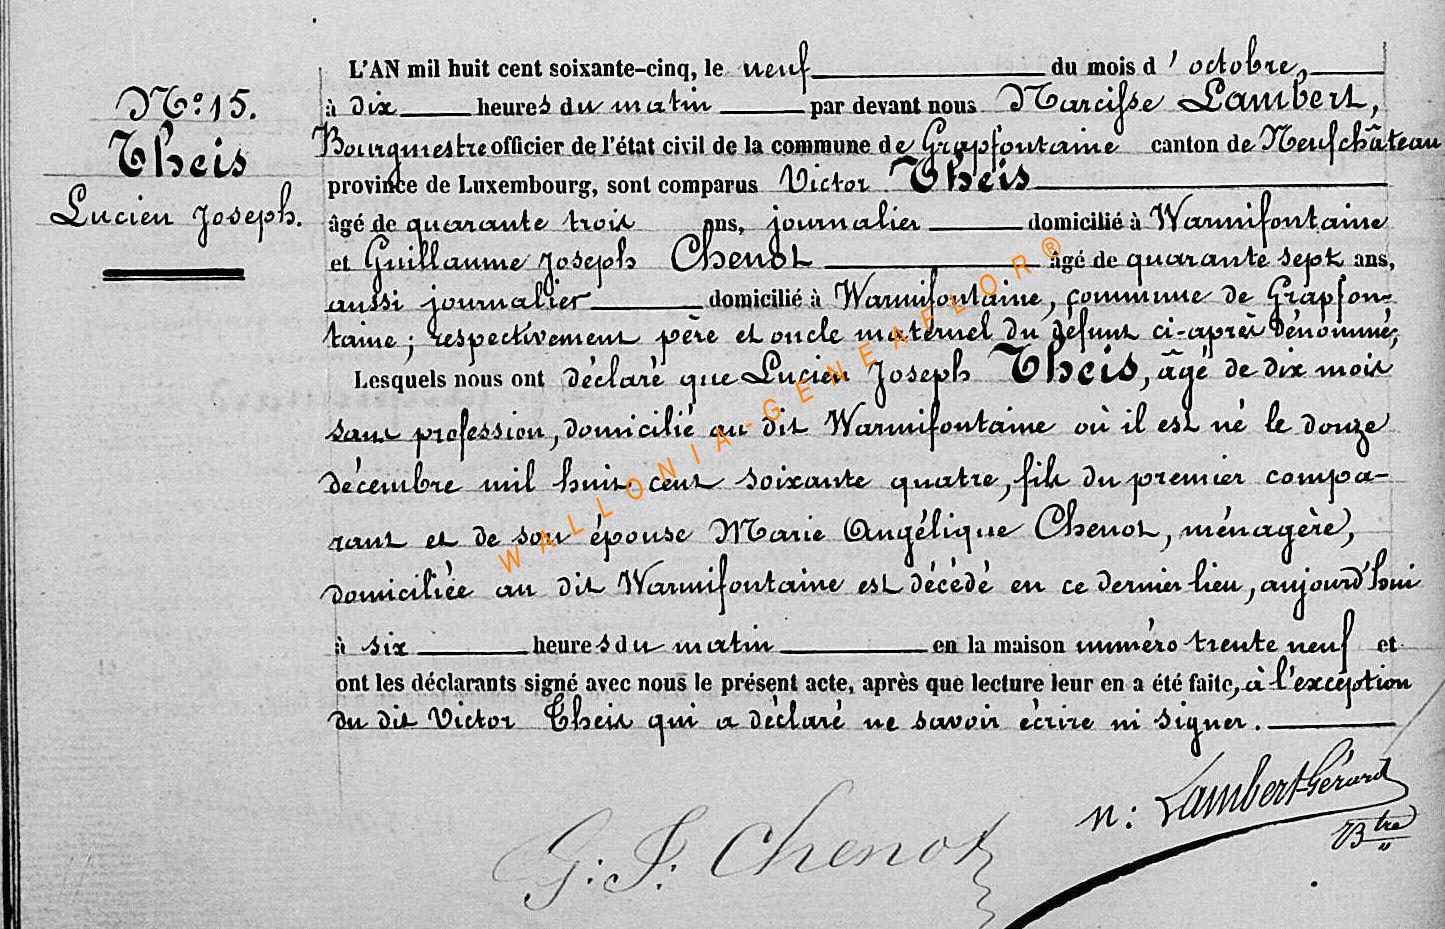 N.° 15.
Theis
Lucien Joseph.
L'AN mil huit cent soixante-cinq, le neuf du mois d'octobre,
à dix heures du matin par devant nous Narcisse Lambert,
Bourgmestre officier de l'état civil de la commune de Grapfontaine canton de Neufchâteau
province de Luxembourg, sont comparus Victor Theis
âgé de quarante trois ans, journalier domicilié à Warmifontaine
et Guillaume Joseph Chenot âgé de quarante sept ans,
aussi journalier domicilié à Warmifontaine, commune de Grapfon-
taine ; respectivement père et oncle maternel du défunt ci-après dénommé,
Lesquels nous ont déclaré que Lucien Joseph Theis, âgé de dix mois
sans profession, domicilié au dit Warmifontaine où il est né le douze
décembre mil huit cent soixante quatre, fils du premier compa-
rant et de son épouse Marie Angélique Chenot, ménagère,
domiciliée au dit Warmifontaine est décédé en ce dernier lieu, aujourd'hui
à six heures du matin en la maison numéro trente neuf et
ont les déclarants signé avec nous le présent acte, après que lecture leur en a été faite, à l'exception
du dit Victor Theis qui a déclaré ne savoir écrire ni signer.
N: Lambert Gérard
Btre
G: J: Chenot
WALLONIA-GENEAFLOR®